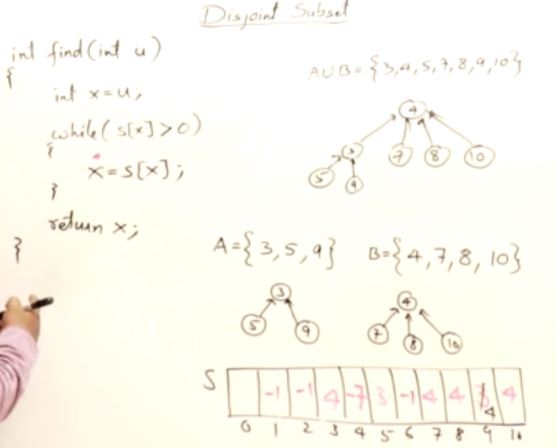 Disjoint Subset
int find(int u)
{
int x=u,
while(s[x]>0)
{
x=s[x];
}
return x;
}
AUB={3,4,5,7,8,9,10}
4
3 7 8 10
5 9
A={3,5,9} B={4,7,8,10}
3 4
5 9 7 8 10
S -1 -1 4 -7 3 -1 4 4 4 4
0 1 2 3 4 5 6 7 8 9 10